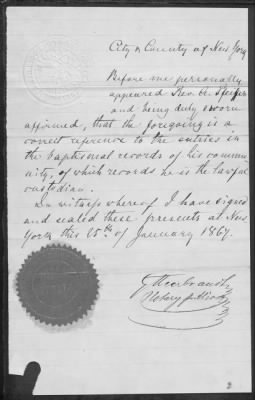 City & County of New York
Before me personally
appeared Rev. A. Pfeifer
and being duly sworn
affirmed, that the foregoing is a
correct reference to the entries in
the baptismal records of his commu-
nity, of which records he is the lawful
custodian.
In witness whereof I have signed
and sealed these presents at New
York this 25th of January 1867.
Notary public
2